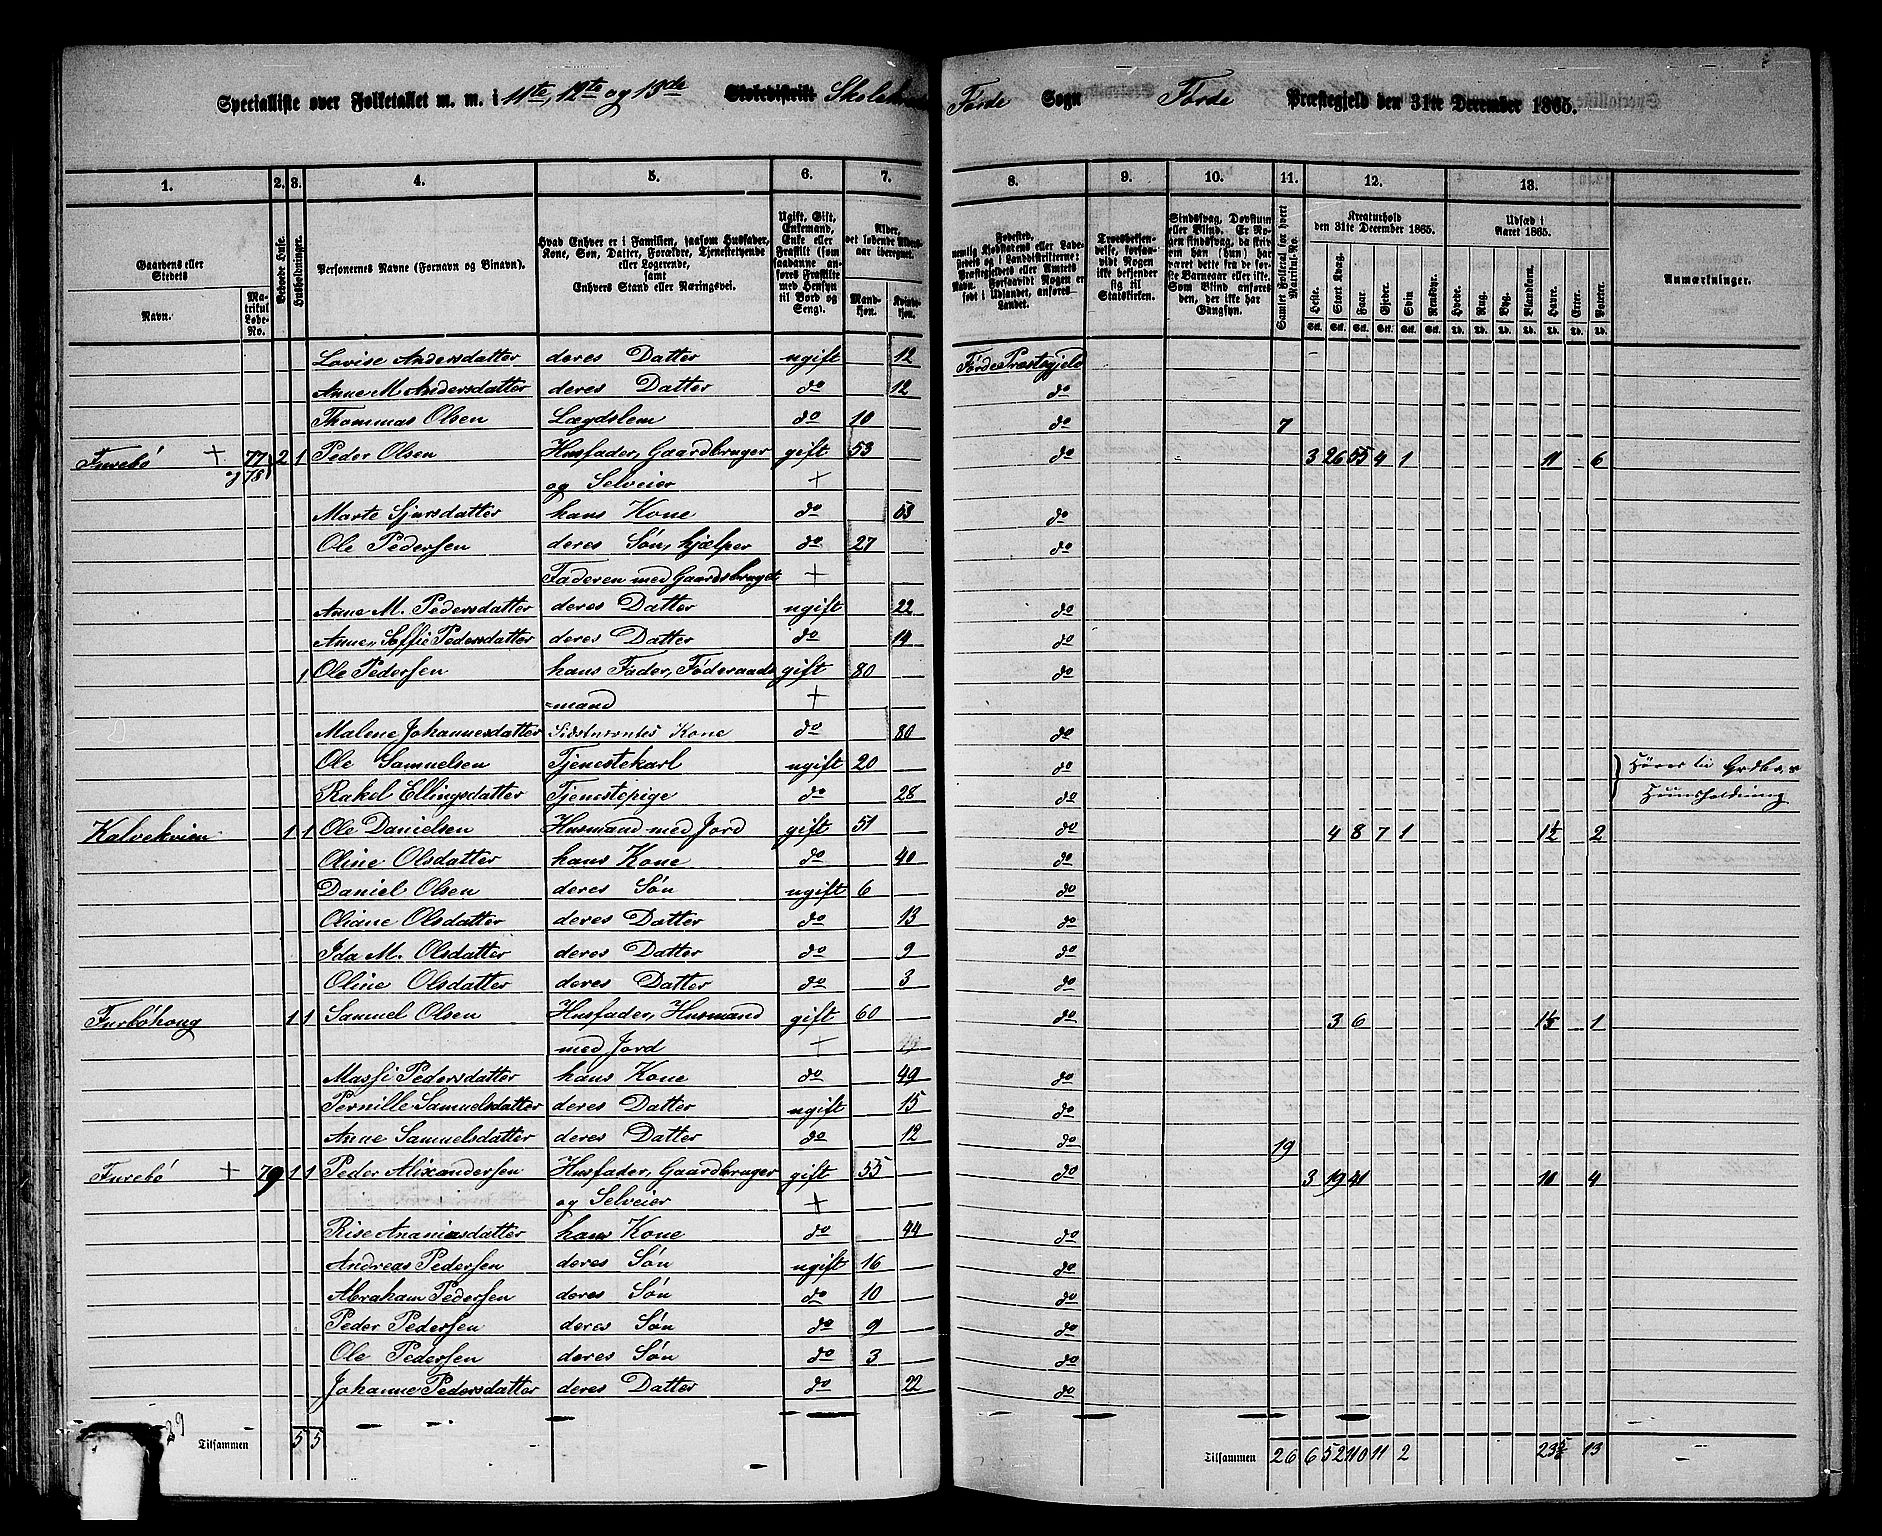 Specialliste over Folketallet m. m. i 11te, 12te og 13de Skoledistrikt Førde Sogn Førde Præstegjeld den 31te December 1865.
1. 2. 3. 4. 5. 6. 7. 8. 9. 10. 11. 12. 13.
Gaardens eller Stedets Navn. Matrikul Løbe-No. Beboede Huse. Husholdninger. Personernes Navne (Fornavn og Binavn).
Hvad Enhver er i Familien, saasom Husfader, Kone, Søn, Datter, Forældre, Tjenestetyende eller Logerende, samt Enhvers Stand eller Næringsvei.
Ugift, Gift, Enkemand, Enke eller Fraskilt (som saadanne anføres Fraskilte med Hensyn til Bord og Seng).
Alder, det løbende Aldersaar iberegnet. Mandkjøn. Kvindekjøn.
Troesbekjendelse, forsaavidt Nogen ikke bekjender sig til Statskirken.
Kreaturhold den 31te December 1865. Heste. Stort Kvæg. Faar. Gjeder. Svin. Rensdyr.
Udsæd i Aaret 1865. Hvede. Rug. Byg. Blandkorn. Havre. Erter. Poteter.
Anmærkninger.
Lovise Andersdatter deres Datter ugift 12 Førde Præstegjeld
Anne M. Andersdatter deres Datter do 12 do
Thommas Olsen Lægdslem do 10 do 7
Furebø + 77 og 78 2 1 Peder Olsen Husfader, Gaardbruger gift 53 do 3 26 55 4 1 11 6
og Selveier +
Marte Sjursdatter hans Kone do 53 do
Ole Pedersen deres Søn, hjælper do 27 do
Faderen med Gaardsbruget +
Anne M. Pedersdatter deres Datter ugift 22 do
Anne Soffie Pedersdatter deres Datter do 14 do
1 Ole Pedersen hans Fader, Føderaads gift 80 do
=mand +
Malene Johannesdatter Sidstnævntes Kone do 80 do
Ole Samuelsen Tjenestekarl ugift 20 do
Rakel Ellingsdatter Tjenestepige do 28 do
Huusholdning
Kalvekvien 1 1 Ole Danielsen Husmand med Jord gift 51 do 4 8 7 1 1½ 2
Oline Olsdatter hans Kone do 40 do
Daniel Olsen deres Søn ugift 6 do
Oliane Olsdatter deres Datter do 13 do
Ida M. Olsdatter deres Datter do 9 do
Oline Olsdatter deres Datter do 3 do
Furbøhoug 1 1 Samuel Olsen Husfader, Husmand gift 60 do 3 6 1
med Jord +
Massi Pedersdatter hans Kone do 49 do
Pernille Samuelsdatter deres Datter ugift 15 do
Anne Samuelsdatter deres Datter do 12 do 19
Furebø + 79 1 1 Peder Alixandersen Husfader, Gaardbruger gift 55 do 3 19 41 10 4
og Selveier +
Rise Ananiasdatter hans Kone do 44 do
Andreas Pedersen deres Søn ugift 16 do
Abraham Pedersen deres Søn do 10 do
Peder Pedersen deres Søn do 9 do
Ole Pedersen deres Søn do 3 do
Johanne Pedersdatter deres Datter do 22 do
Tilsammen 5 5 Tilsammen 26 6 52 110 11 2 13